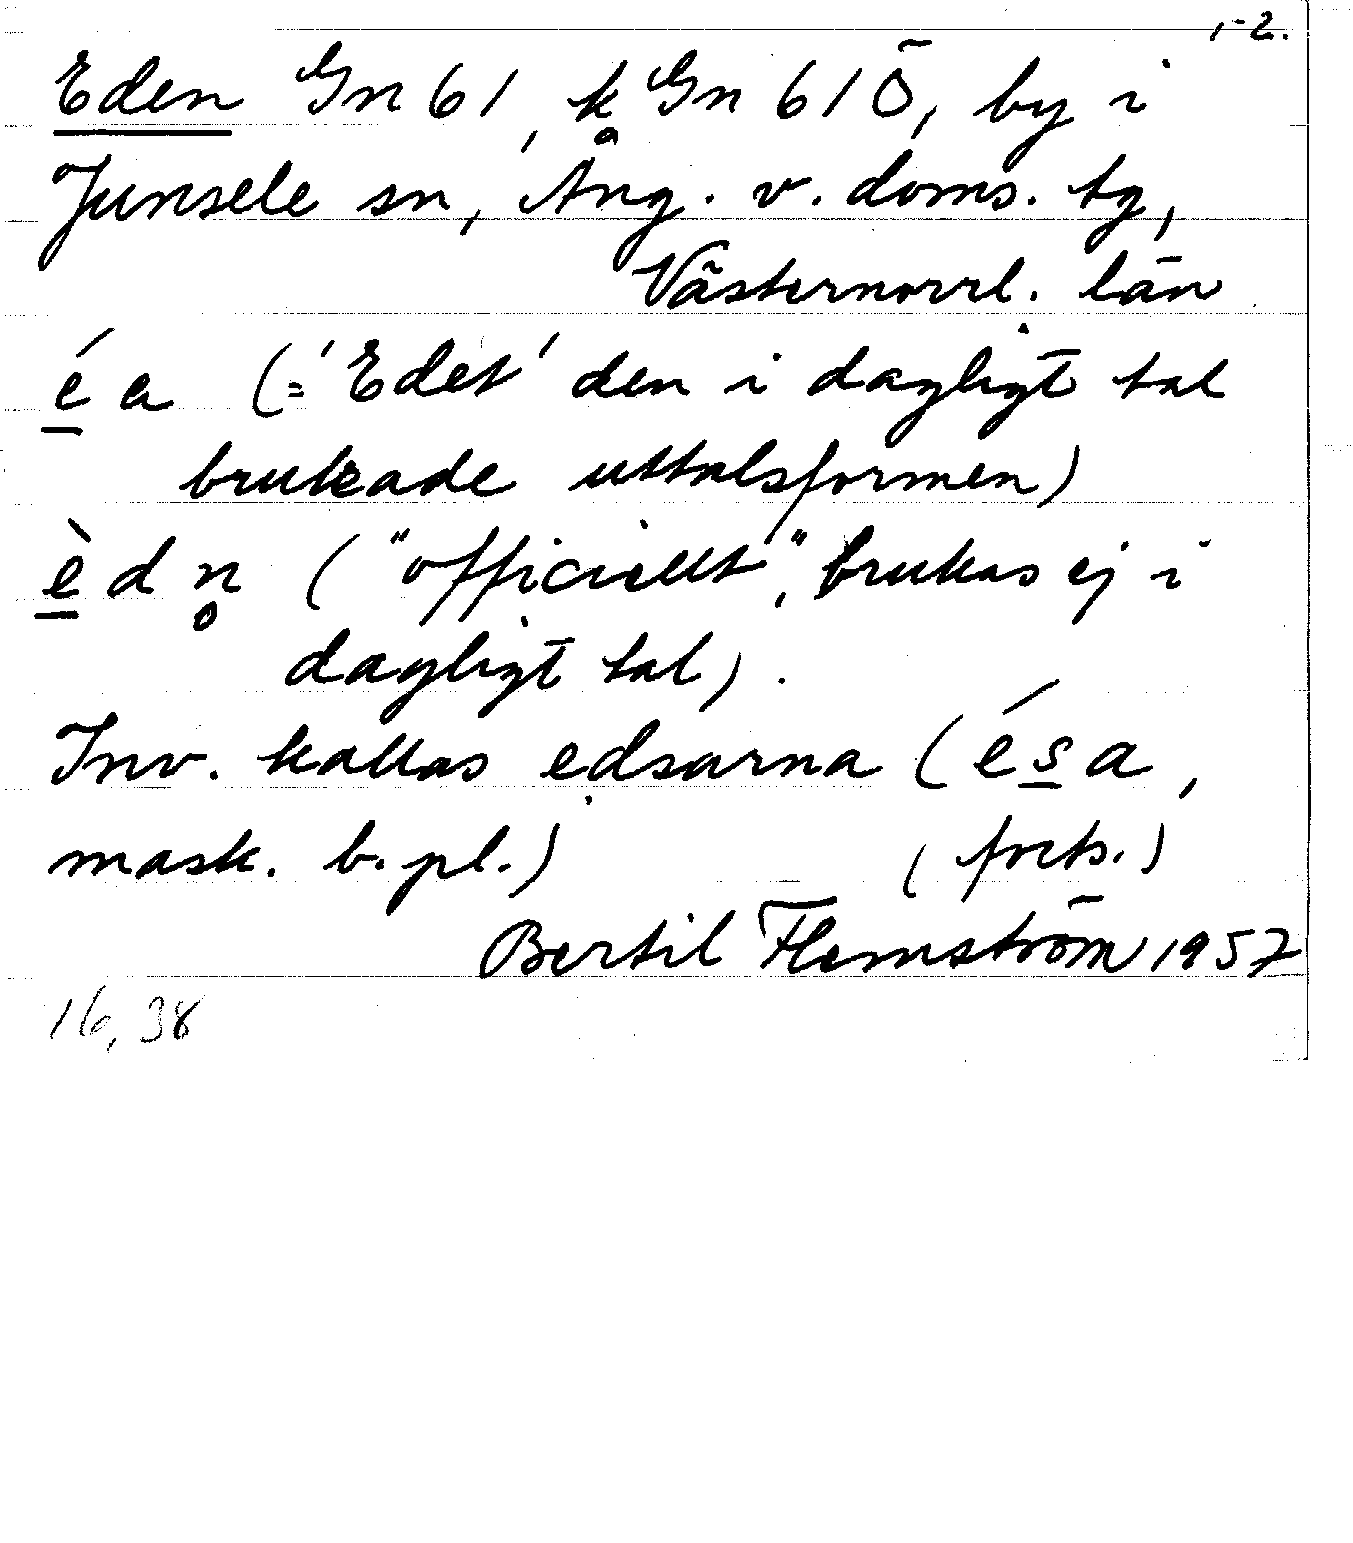 1-2.
Eden Gn 61, k Gn 61 Ö, by i
Junsele sn, Ång. v. doms. tg,
Västernorrl. län
é a (= 'Edet' den i dagligt tal
brukade uttalsformen)
è d n̥ ("officiellt", brukas ej i
dagligt tal).
Inv. kallas edsarna (é s a,
mask. b. pl.) (forts.)
Bertil Flemström 1957
16, 38